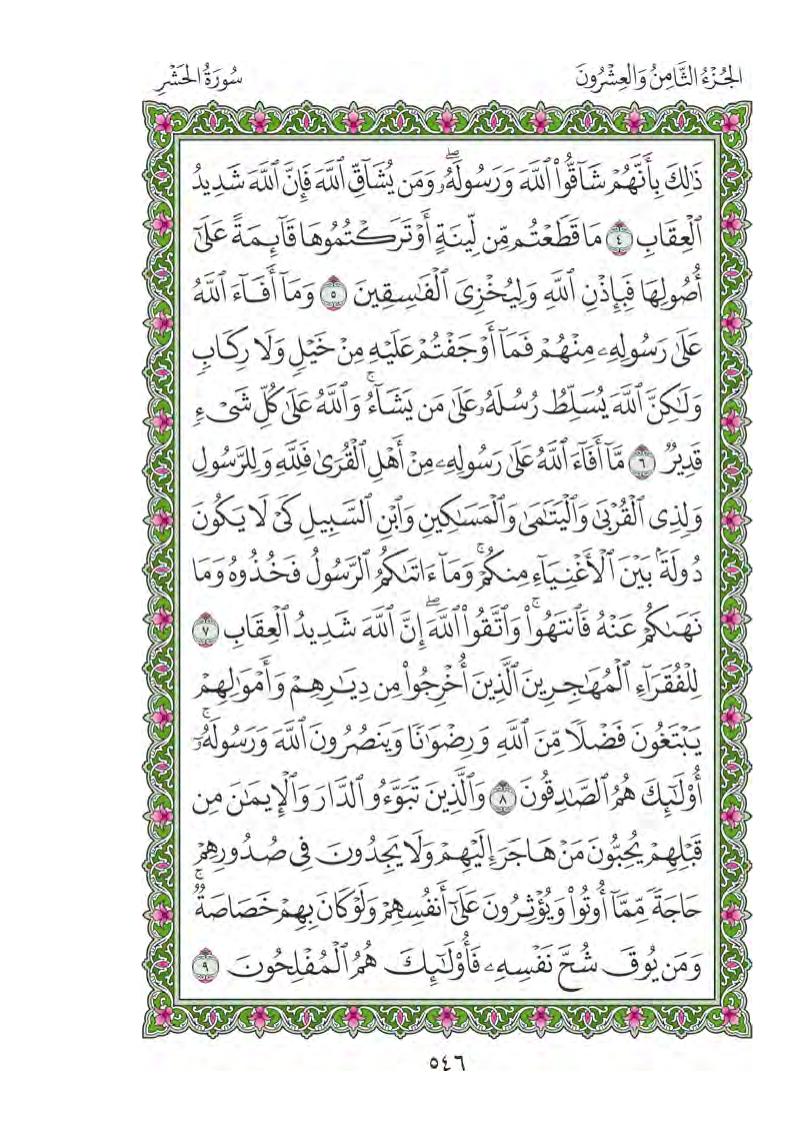 الجُزْءُ الثَّامِنُ وَالعِشْرُونَ
سُورَةُ الحَشْرِ
ذَٰلِكَ بِأَنَّهُمْ شَآقُّوا۟ ٱللَّهَ وَرَسُولَهُۥ ۖ وَمَن يُشَآقِّ ٱللَّهَ فَإِنَّ ٱللَّهَ شَدِيدُ
ٱلْعِقَابِ ٤ مَا قَطَعْتُم مِّن لِّينَةٍ أَوْ تَرَكْتُمُوهَا قَآئِمَةً عَلَىٰٓ
أُصُولِهَا فَبِإِذْنِ ٱللَّهِ وَلِيُخْزِىَ ٱلْفَٰسِقِينَ ٥ وَمَآ أَفَآءَ ٱللَّهُ
عَلَىٰ رَسُولِهِۦ مِنْهُمْ فَمَآ أَوْجَفْتُمْ عَلَيْهِ مِنْ خَيْلٍ وَلَا رِكَابٍ
وَلَٰكِنَّ ٱللَّهَ يُسَلِّطُ رُسُلَهُۥ عَلَىٰ مَن يَشَآءُ ۚ وَٱللَّهُ عَلَىٰ كُلِّ شَىْءٍ
قَدِيرٌ ٦ مَّآ أَفَآءَ ٱللَّهُ عَلَىٰ رَسُولِهِۦ مِنْ أَهْلِ ٱلْقُرَىٰ فَلِلَّهِ وَلِلرَّسُولِ
وَلِذِى ٱلْقُرْبَىٰ وَٱلْيَتَٰمَىٰ وَٱلْمَسَٰكِينِ وَٱبْنِ ٱلسَّبِيلِ كَىْ لَا يَكُونَ
دُولَةًۢ بَيْنَ ٱلْأَغْنِيَآءِ مِنكُمْ ۚ وَمَآ ءَاتَىٰكُمُ ٱلرَّسُولُ فَخُذُوهُ وَمَا
نَهَىٰكُمْ عَنْهُ فَٱنتَهُوا۟ ۚ وَٱتَّقُوا۟ ٱللَّهَ ۖ إِنَّ ٱللَّهَ شَدِيدُ ٱلْعِقَابِ ٧
لِلْفُقَرَآءِ ٱلْمُهَٰجِرِينَ ٱلَّذِينَ أُخْرِجُوا۟ مِن دِيَٰرِهِمْ وَأَمْوَٰلِهِمْ
يَبْتَغُونَ فَضْلًا مِّنَ ٱللَّهِ وَرِضْوَٰنًا وَيَنصُرُونَ ٱللَّهَ وَرَسُولَهُۥٓ ۚ
أُو۟لَٰٓئِكَ هُمُ ٱلصَّٰدِقُونَ ٨ وَٱلَّذِينَ تَبَوَّءُو ٱلدَّارَ وَٱلْإِيمَٰنَ مِن
قَبْلِهِمْ يُحِبُّونَ مَنْ هَاجَرَ إِلَيْهِمْ وَلَا يَجِدُونَ فِى صُدُورِهِمْ
حَاجَةً مِّمَّآ أُوتُوا۟ وَيُؤْثِرُونَ عَلَىٰٓ أَنفُسِهِمْ وَلَوْ كَانَ بِهِمْ خَصَاصَةٌ ۚ
وَمَن يُوقَ شُحَّ نَفْسِهِۦ فَأُو۟لَٰٓئِكَ هُمُ ٱلْمُفْلِحُونَ ٩
٥٤٦